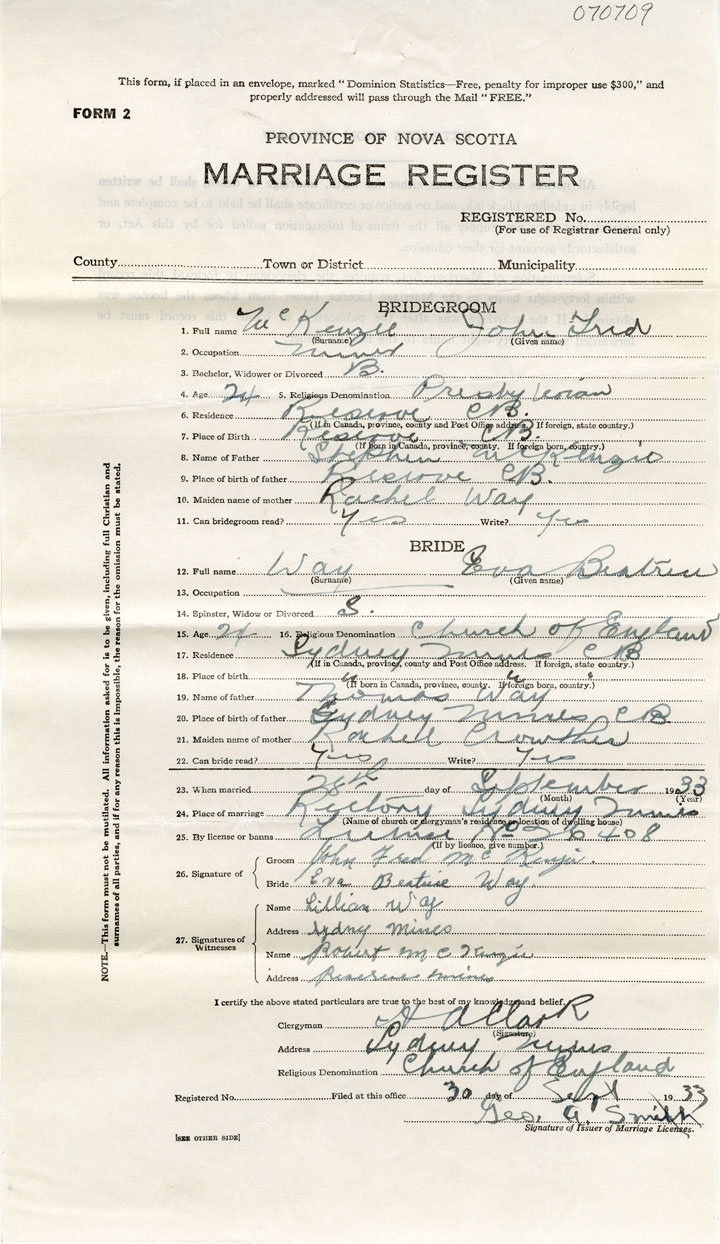 070709
This form, if placed in an envelope, marked "Dominion Statistics—Free, penalty for improper use $300," and
properly addressed will pass through the Mail "FREE."
FORM 2
PROVINCE OF NOVA SCOTIA
MARRIAGE REGISTER
REGISTERED No.
(For use of Registrar General only)
County Town or District Municipality
BRIDEGROOM
1. Full name McKenzie John Fred
(Surname) (Given name)
2. Occupation Miner
3. Bachelor, Widower or Divorced B.
4. Age 24 5. Religious Denomination Presbyterian
6. Residence Reserve CB.
(If in Canada, province, county and Post Office address. If foreign, state country.)
7. Place of Birth Reserve CB.
(If born in Canada, province, county. If foreign born, country.)
8. Name of Father Stephen McKenzie
9. Place of birth of father Reserve CB.
10. Maiden name of mother Rachel Way
11. Can bridegroom read? Yes Write? Yes
BRIDE
12. Full name Way Eva Beatrice
(Surname) (Given name)
13. Occupation
14. Spinster, Widow or Divorced S.
15. Age 21 16. Religious Denomination Church of England
17. Residence Sydney Mines CB
(If in Canada, province, county and Post Office address. If foreign, state country.)
18. Place of birth " " "
(If born in Canada, province, county. If foreign born, country.)
19. Name of father Thomas Way
20. Place of birth of father Sydney Mines CB
21. Maiden name of mother Rachel Crowther
22. Can bride read? Yes Write? Yes
23. When married 28th day of September 1933
(Month) (Year)
24. Place of marriage Rectory Sydney Mines
(Name of church or clergyman's residence or location of dwelling house)
25. By license or banns License No 26408
(If by licence, give number.)
26. Signature of
Groom John Fred McKenzie.
Bride Eva Beatrice Way.
27. Signatures of Witnesses
Name Lillian Way
Address Sydney Mines
Name Robert McKenzie
Address Reserve Mines
I certify the above stated particulars are true to the best of my knowledge and belief.
Clergyman A A Clark
(Signature)
Address Sydney Mines
Religious Denomination Church of England
Registered No. Filed at this office 30 day of Sept 1933
Geo. A. Smith
Signature of Issuer of Marriage Licenses.
[SEE OTHER SIDE]
NOTE.—This form must not be mutilated. All information asked for is to be given, including full Christian and
surnames of all parties, and if for any reason this is impossible, the reason for the omission must be stated.